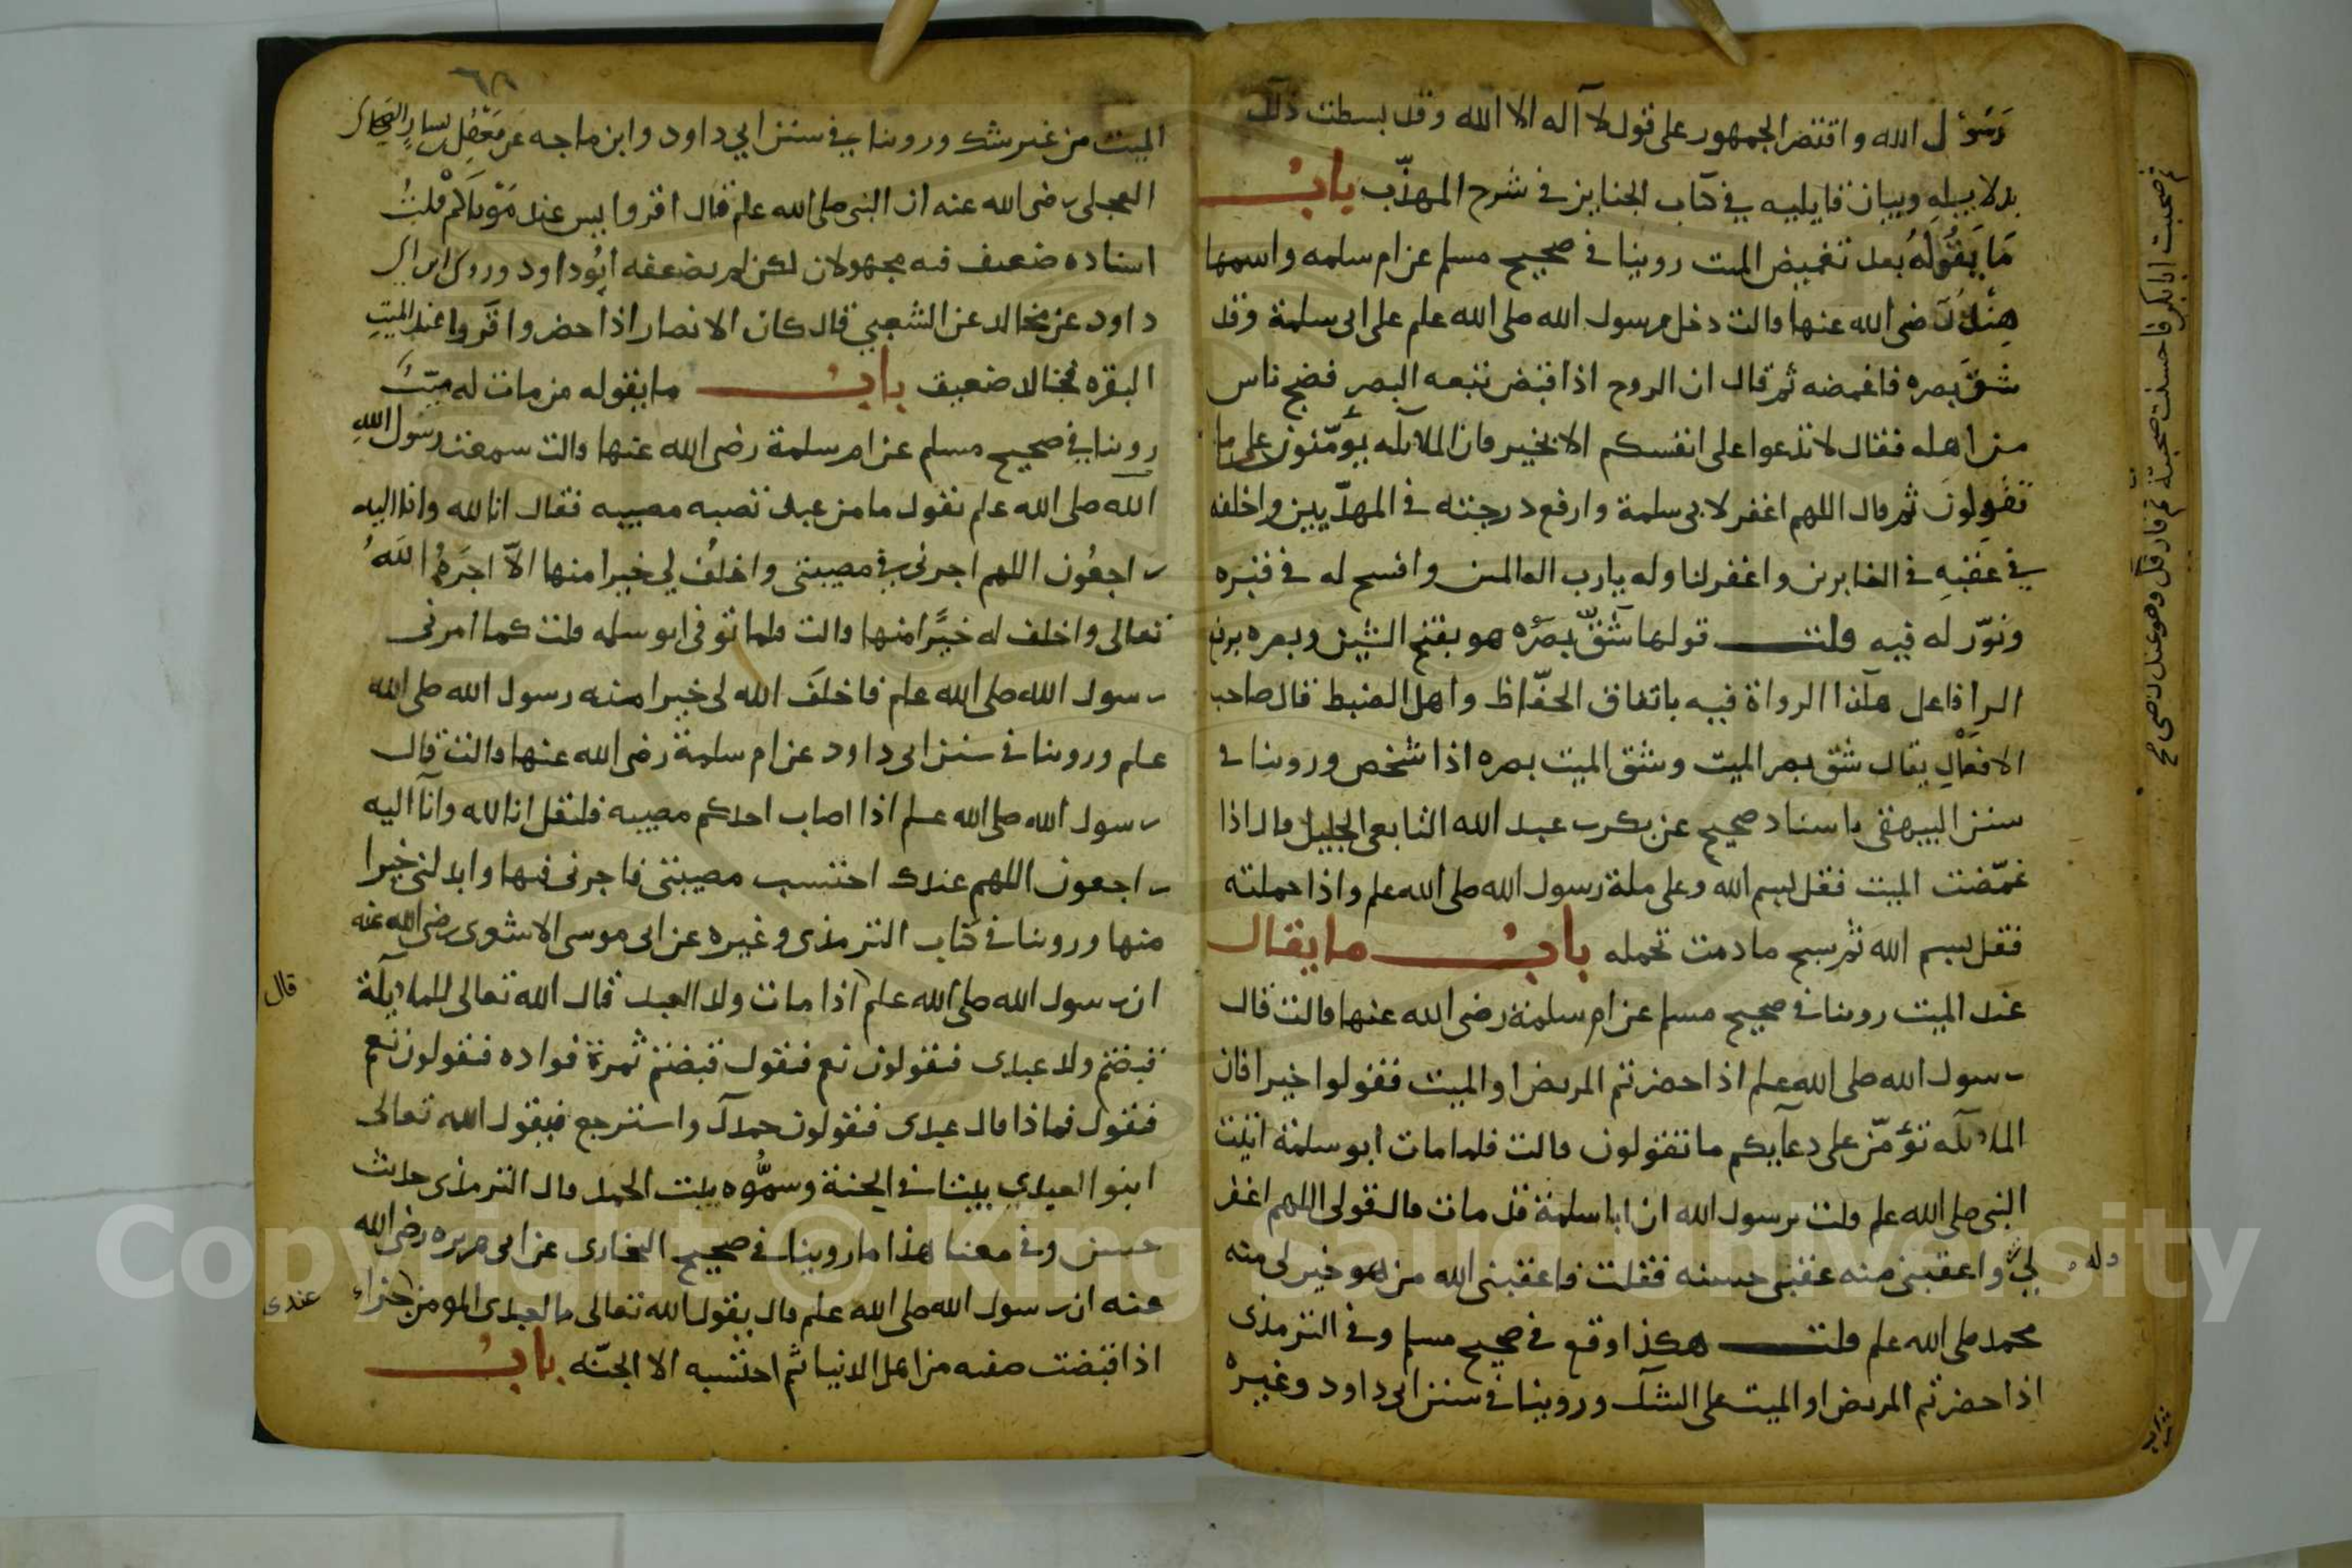 رَسُول الله واقتصر الجمهور على قول لا آله الا الله وقد بسطت ذلك
بدلايله وبيان قايليه في كتاب الجنايز في شرح المهذّب بابُ
مَا يَقُولُهُ بعد تغميض الميت روينا في صحيح مسلم عن ام سلمه واسمها
هِنْدُ رضى الله عنها قالت دخل رسول الله صلى الله علم على ابى سلمة وقد
شَقَّ بصره فاغمضه ثم قال ان الروح اذا قبض تبعه البصر فضج ناس
من اهله فقال لا تدعوا على انفسكم الا بخير فان الملآيكه يؤَمّنون على ما
تقولونَ ثم قال اللهم اغفر لابى سلمة وارفع درجته في المهدّيين واخلفه
في عقبهِ في الغابرين واغفر لنا وله يارب العالمين وافسح له في قبره
ونوّر له فيه قلت قولها شَقَّ بصَرُه هو بفتح الشين وبصره برفع
الرا فاعل هآكذا الرواة فيه باتفاق الحفّاظ واهل الضبط قال صاحب
الافعْال يقال شقّ بصر الميت وشق الميت بصره اذا شخص وروينا في
سنن البيهقى باسناد صحيح عن بكر بن عبد الله التابعى الجليل قال اذا
غمّضت الميت فقل بسم الله وعلى ملة رسول الله صلى الله علم واذا حملته
فقل بسم الله ثم سبح ما دمت تحمله بابُ ما يقال
عند الميت روينا في صحيح مسلم عن ام سلمة رضى الله عنها قالت قال
رسول الله صلى الله علم اذا حضرتم المريض او الميت فقولوا خيرا فان
الملايكه تؤمّن على دعآيكم ما تقولون قالت فلما مات ابو سلمة اتيت
النبى صلى الله علم قلت يرسول الله ان ابا سلمة قد مات قال قولى اللهم اغفر
لى واعقبنى منه عقبى حسنه فقلت فاعقبنى الله من هو خير لى منه
وله
محمد صلى الله علم قلت هكذا وقع في صحيح مسلم وفي الترمذى
اذا حضرتم المريض او الميت على الشك وروينا في سنن ابى داود وغيره
الميت من غير شك وروينا في سنن ابي داود وابن ماجه عن مَعْقِل بن يسارٍ الصحابى
ان النبى صلى الله علم قال اقروا يس عند مَوْتاكم قلتُ
اسناده ضعيف فيه مجهولان لكن لم يضعفه ابُوداود وروى ابن ابى
داود عن مجالد عن الشعبي قال كان الانصار اذا حضروا قَروا عند الميتِ
البقره مجالد ضعيف بابُ ما يقوله من مات له ميّتٌ
روينا في صحيح مسلم عن ام سلمة رضى الله عنها قالت سمعت رسول اللهِ
الله صلى الله علم يقول ما من عبد تصبه مصيبه فقال انا لله وانا اليه
راجعُون اللهم اجرنى في مصيبتى واخلُف لي خيرا منها الاّ اجَرَهُ اللهُ
تعالى واخلف له خيرًا منها قالت فلما توفى ابو سلمه قلت كما امرنى
رسول الله صلى الله علم فاخلفَ الله لى خيرا منه رسول الله صلى الله
علم وروينا في سنن ابى داود عن ام سلمة رضى الله عنها قالت قال
رسول الله صلى الله علم اذا اصاب احدكم مصيبه فليقل انا لله وانآ اليه
راجعون اللهم عندك احتسب مصيبتى فاجرنى فيها وابدلنى خيرا
منها وروينا في كتاب الترمذى وغيره عن ابى موسى الاشعرى رضى الله عنه
ان رسول الله صلى الله علم اذا مات ولد العبد قال الله تعالى للملايكة
قال
قبضتم ولد عبدى فيقولون نعم فيقول قبضتم ثمرة فواده فيقولون نعم
فيقول فماذا قال عبدى فيقولون حمدك واسترجع فيقول الله تعالى
ابنوا لعبدي بيتا في الجنة وسَمُّوه بيت الحمد قال الترمذى حديث
حسن وفي معنا هذا ما روينا في صحيح البخارى عن ابى هريره رضى الله
عنه ان رسول الله صلى الله علم قال يقول الله تعالى ما لعبدى المومن جزاء
عندى
اذا قبضت صفيه من اهل الدنيا ثم احتسبه الا الجنّه بابُ
Copyright © King Saud University